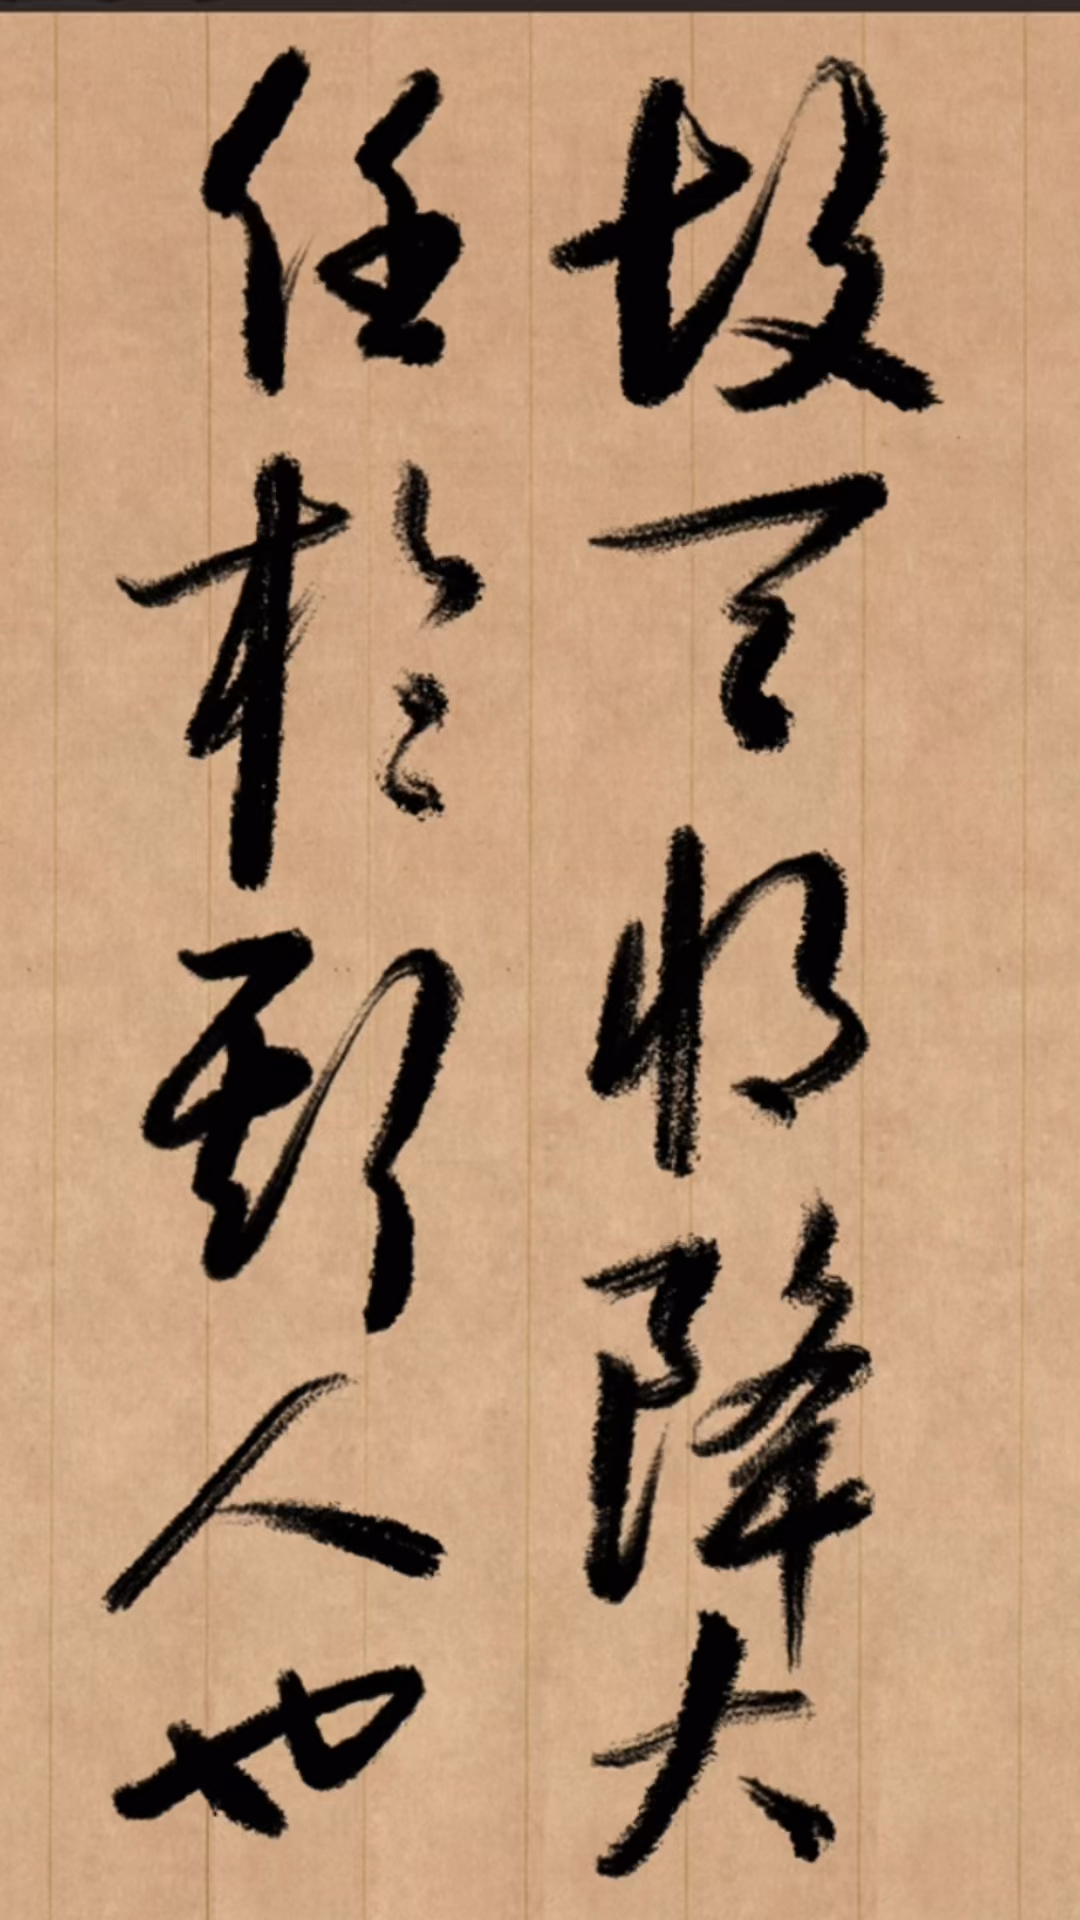 故天将降大
任於斯人也